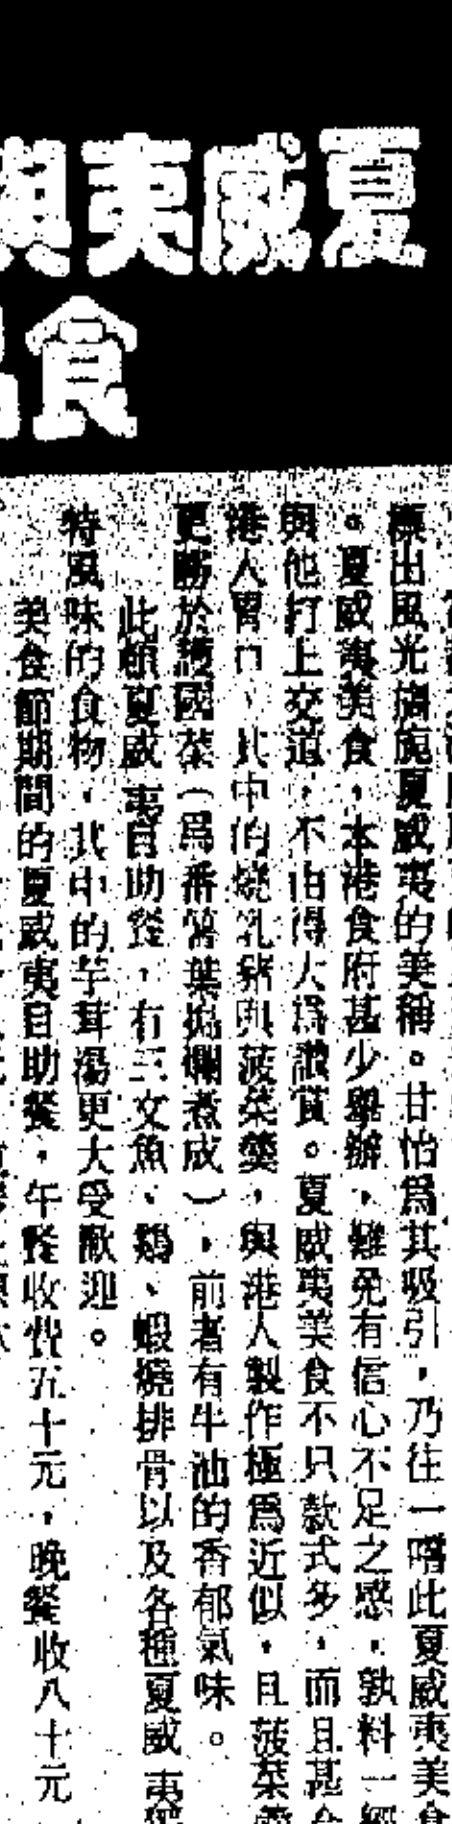 夏威夷與
食
漂出風光旖旎夏威夷的美稱。甘怡爲其吸引,乃往一嚐此夏威夷美食
。夏威夷美食,本港食府甚少舉辦,難免有信心不足之感,孰料一經
與他打上交道,不由得大爲讚賞。夏威夷美食不只款式多,而且甚合
港人胃口,其中的燒乳豬與菠菜羹,與港人製作極爲近似,且菠菜羹
更勝於護國菜(爲番薯葉搗爛煮成),前者有牛油的香郁氣味。
此頓夏威夷自助餐,有三文魚、鷄、蝦燒排骨以及各種夏威夷獨
特風味的食物,其中的芋茸湯更大受歡迎。
美食節期間的夏威夷自助餐,午餐收費五十元,晚餐收八十元,